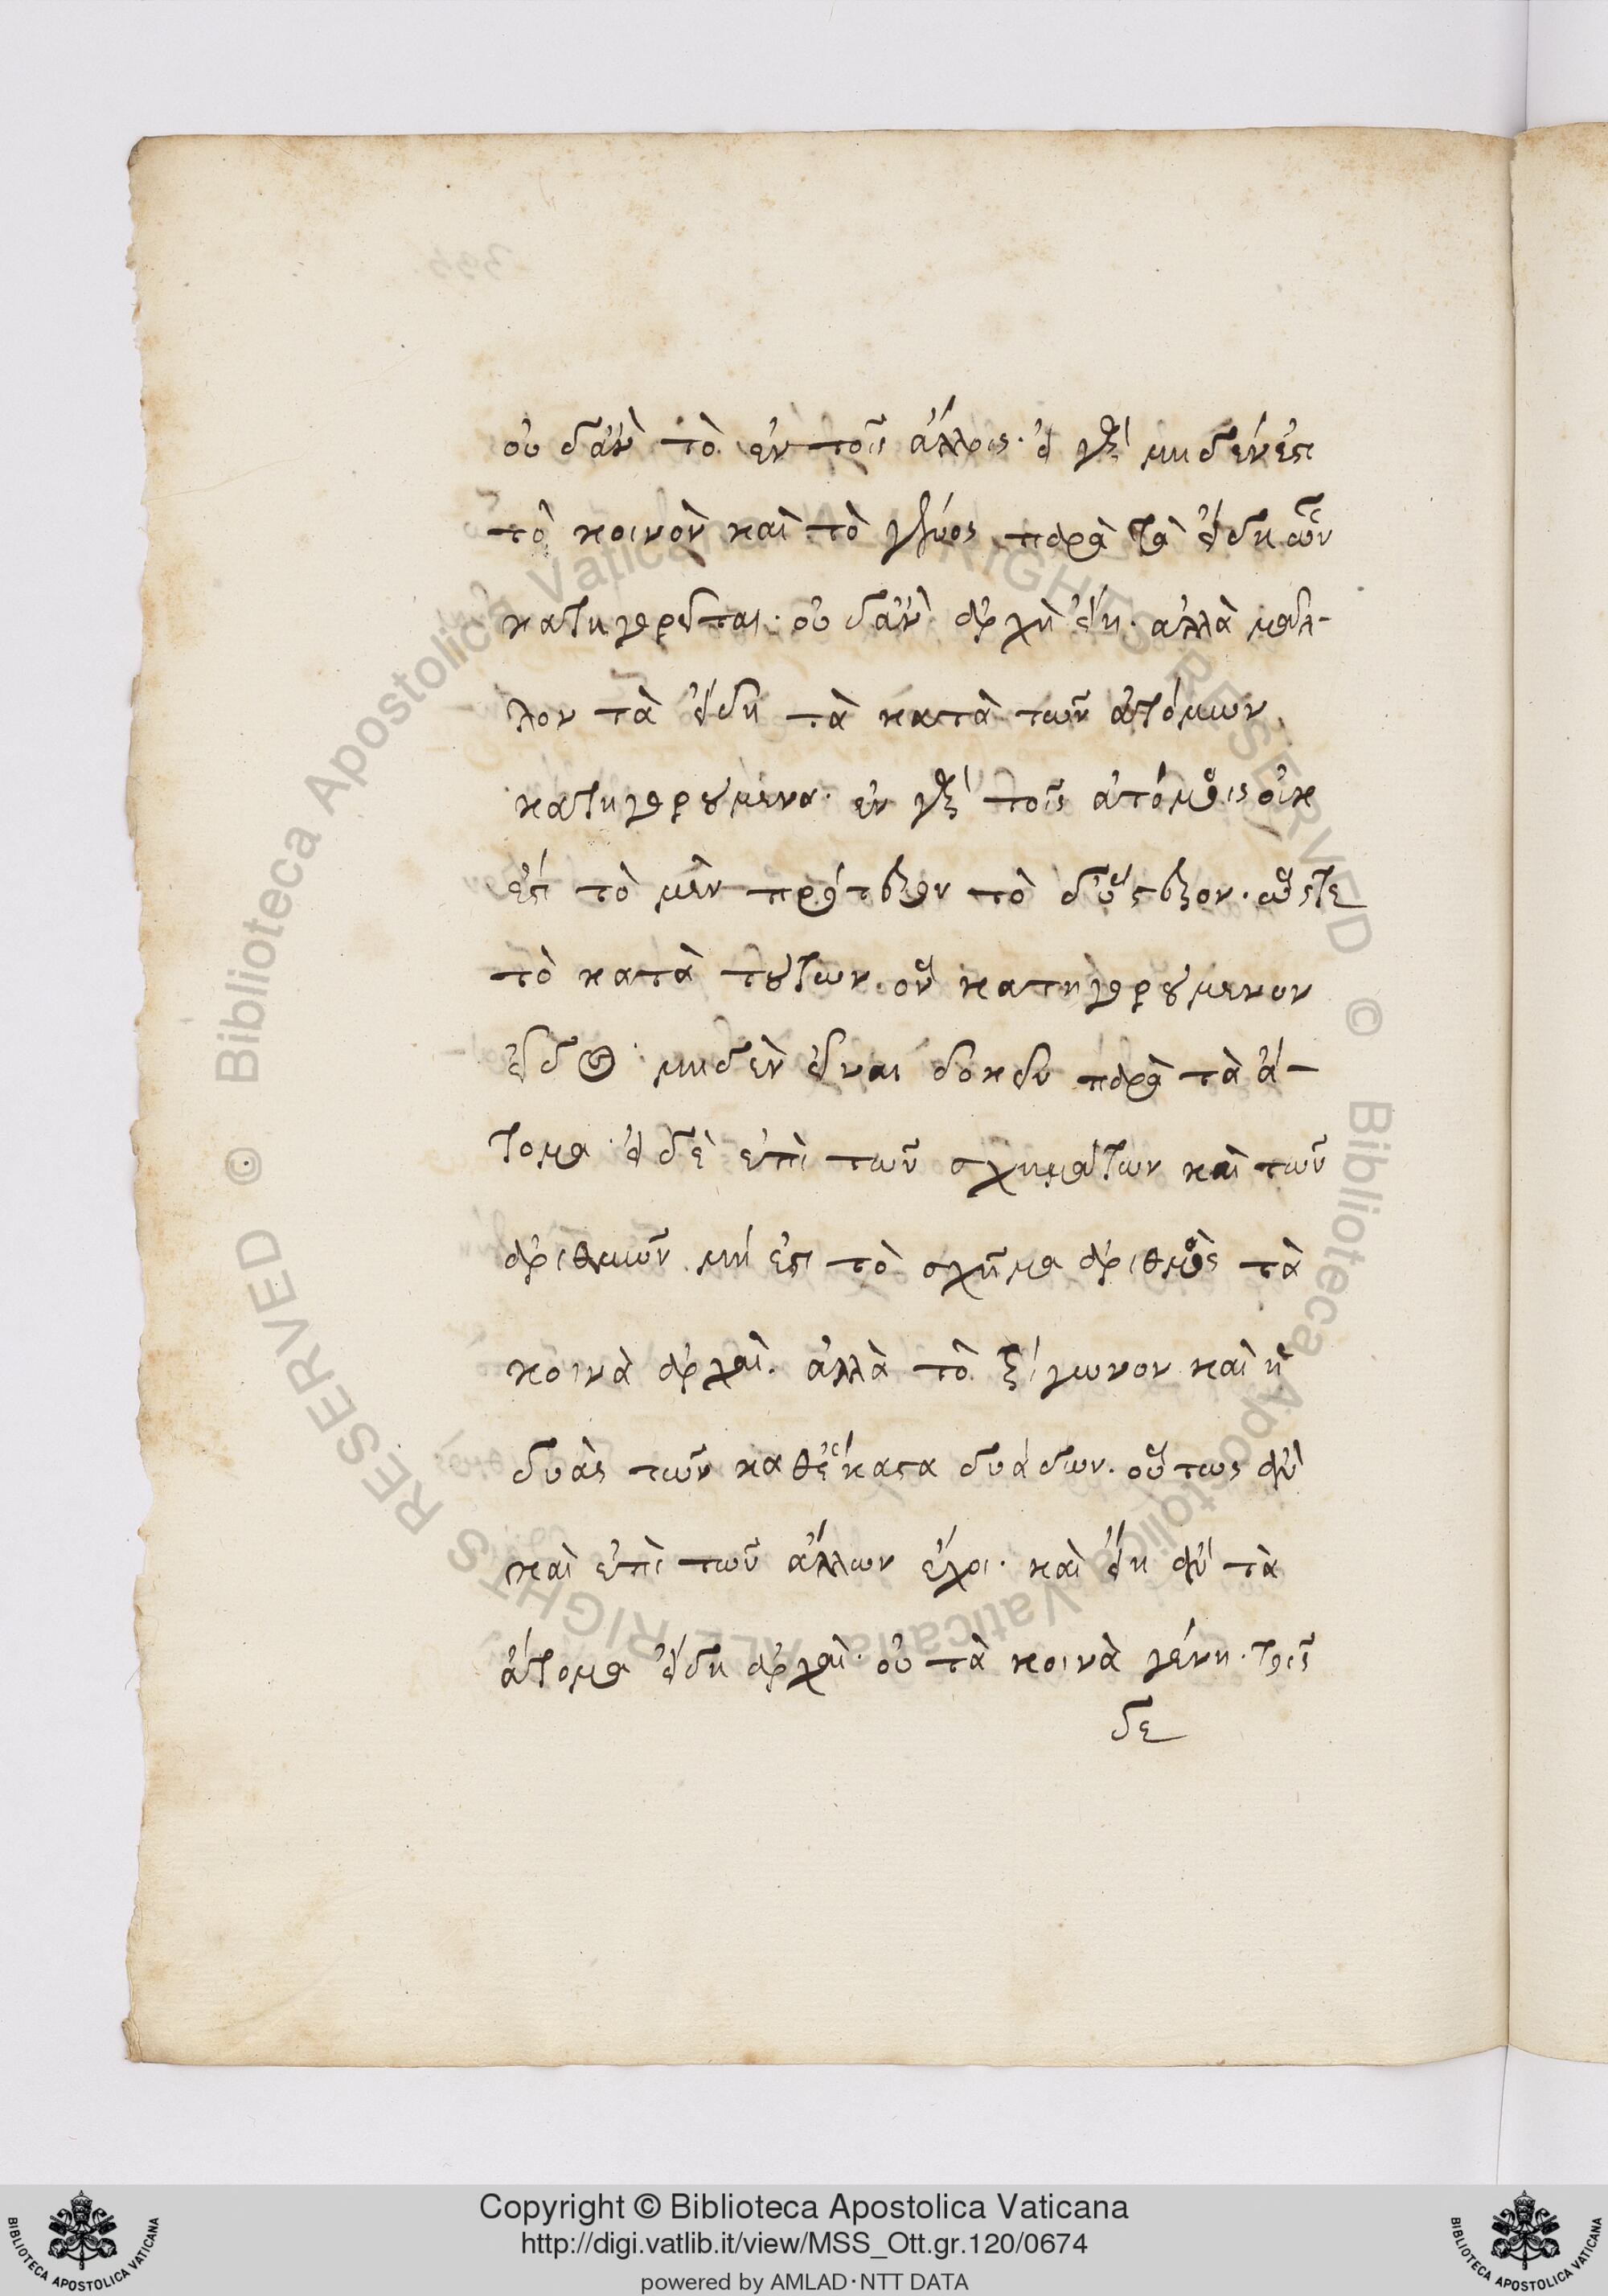 οὐδ' ἂν τὸ ἐν τοῖς ἄλλοις. εἰ γὰρ μηδέν ἐστι
τὸ κοινὸν καὶ τὸ γένος παρὰ τὰ εἴδη ὧν
κατηγορεῖται. οὐδ' ἂν ἀρχὴ εἴη. ἀλλὰ μᾶλ-
λον τὰ εἴδη τὰ κατὰ τῶν ἀτόμων
κατηγορούμενα. ἐν γὰρ τοῖς ἀτόμοις οὐκ
ἔστι τὸ μὲν πρότερον τὸ δ' ὕστερον. ὥστε
τὸ κατὰ τούτων ὂν κατηγορούμενον
εἶδος μηδὲν εἶναι δοκεῖν παρὰ τὰ ἄ-
τομα. εἰ δὲ ἐπὶ τῶν σχημάτων καὶ τῶν
ἀριθμῶν μή ἐστι τὸ σχῆμα ἀριθμὸς τὰ
κοινὰ ἀρχαὶ. ἀλλὰ τὸ τρίγωνον καὶ ἡ
δυὰς τῶν καθέκαστα δυάδων. οὕτως ἂν
καὶ ἐπὶ τῶν ἄλλων ἔχοι. καὶ εἴη ἂν τὰ
ἄτομα εἴδη ἀρχαὶ. οὐ τὰ κοινὰ γένη. τοῖς
δε
Copyright © Biblioteca Apostolica Vaticana
http://digi.vatlib.it/view/MSS_Ott.gr.120/0674
powered by AMLAD·NTT DATA
BIBLIOTECA APOSTOLICA VATICANA
BIBLIOTECA APOSTOLICA VATICANA
© Biblioteca Apostolica Vaticana ALL RIGHTS RESERVED
© Biblioteca Apostolica Vaticana ALL RIGHTS RESERVED